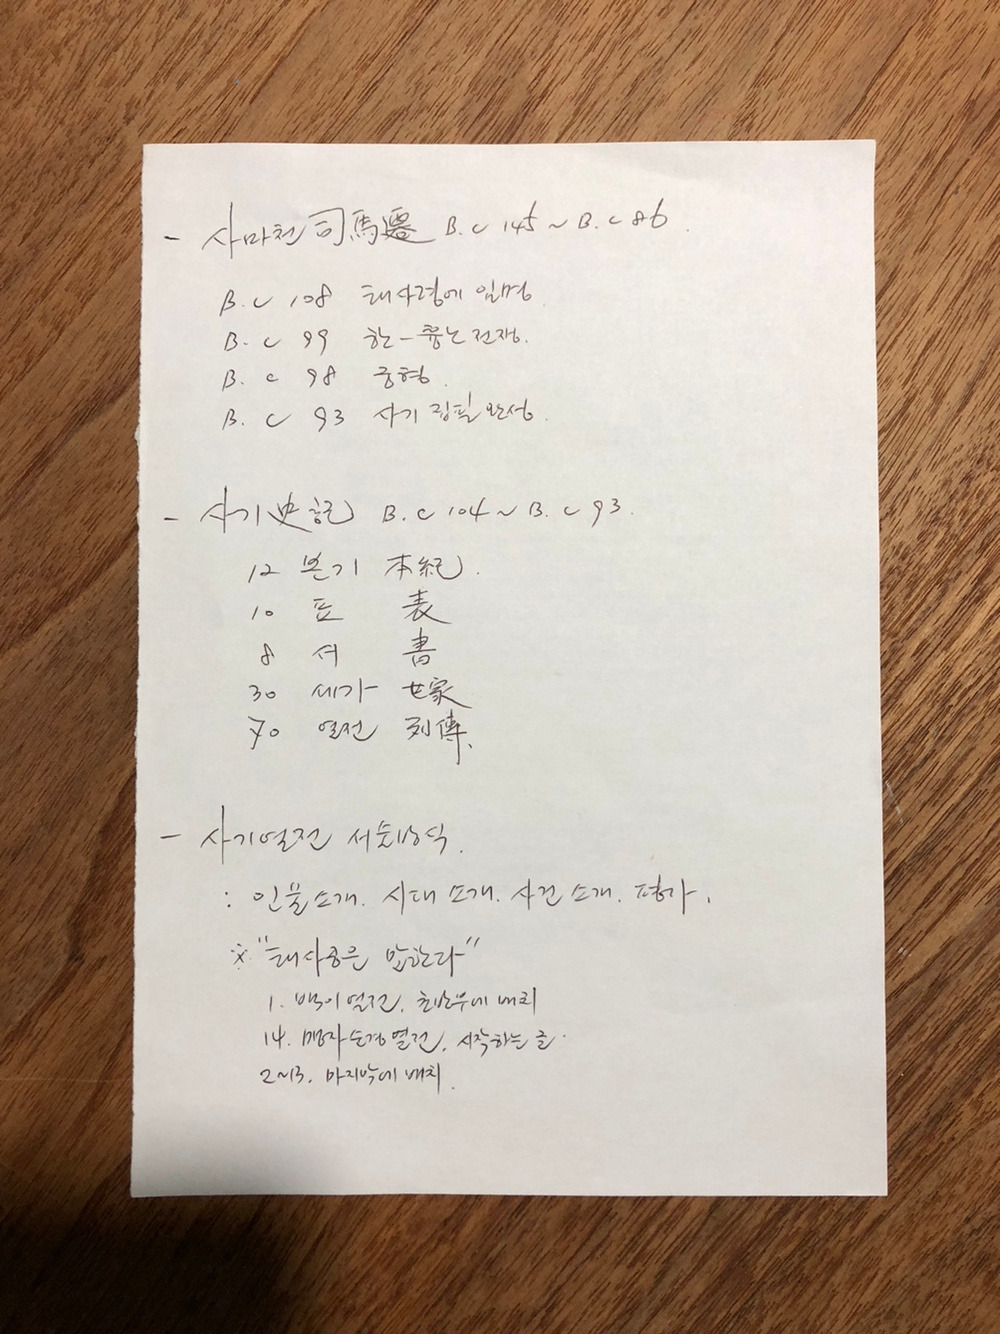 - 사마천 司馬遷 B.C 145 ~ B.C 86.
B.C 108 태사령에 임명.
B.C 99 한-흉노 전쟁.
B.C 98 궁형.
B.C 93 사기 집필 완성.
- 사기 史記 B.C 104 ~ B.C 93.
12 본기 本紀.
10 표 表
8 서 書
30 세가 世家
70 열전 列傳.
- 사기열전 서술방식.
: 인물소개. 시대 소개. 사건 소개. 평가.
※ "태사공은 말한다"
1. 백이열전, 초반부에 배치
14. 맹자순경열전, 시작하는 글.
2~13. 마지막에 배치.